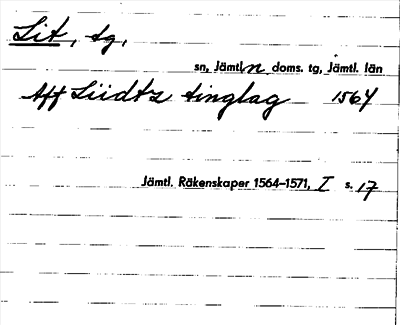 Lit, tg,
sn, Jämtl. n doms. tg, Jämtl. län
Aff Liidtz tinglag 1564
Jämtl. Räkenskaper 1564–1571, I s. 17